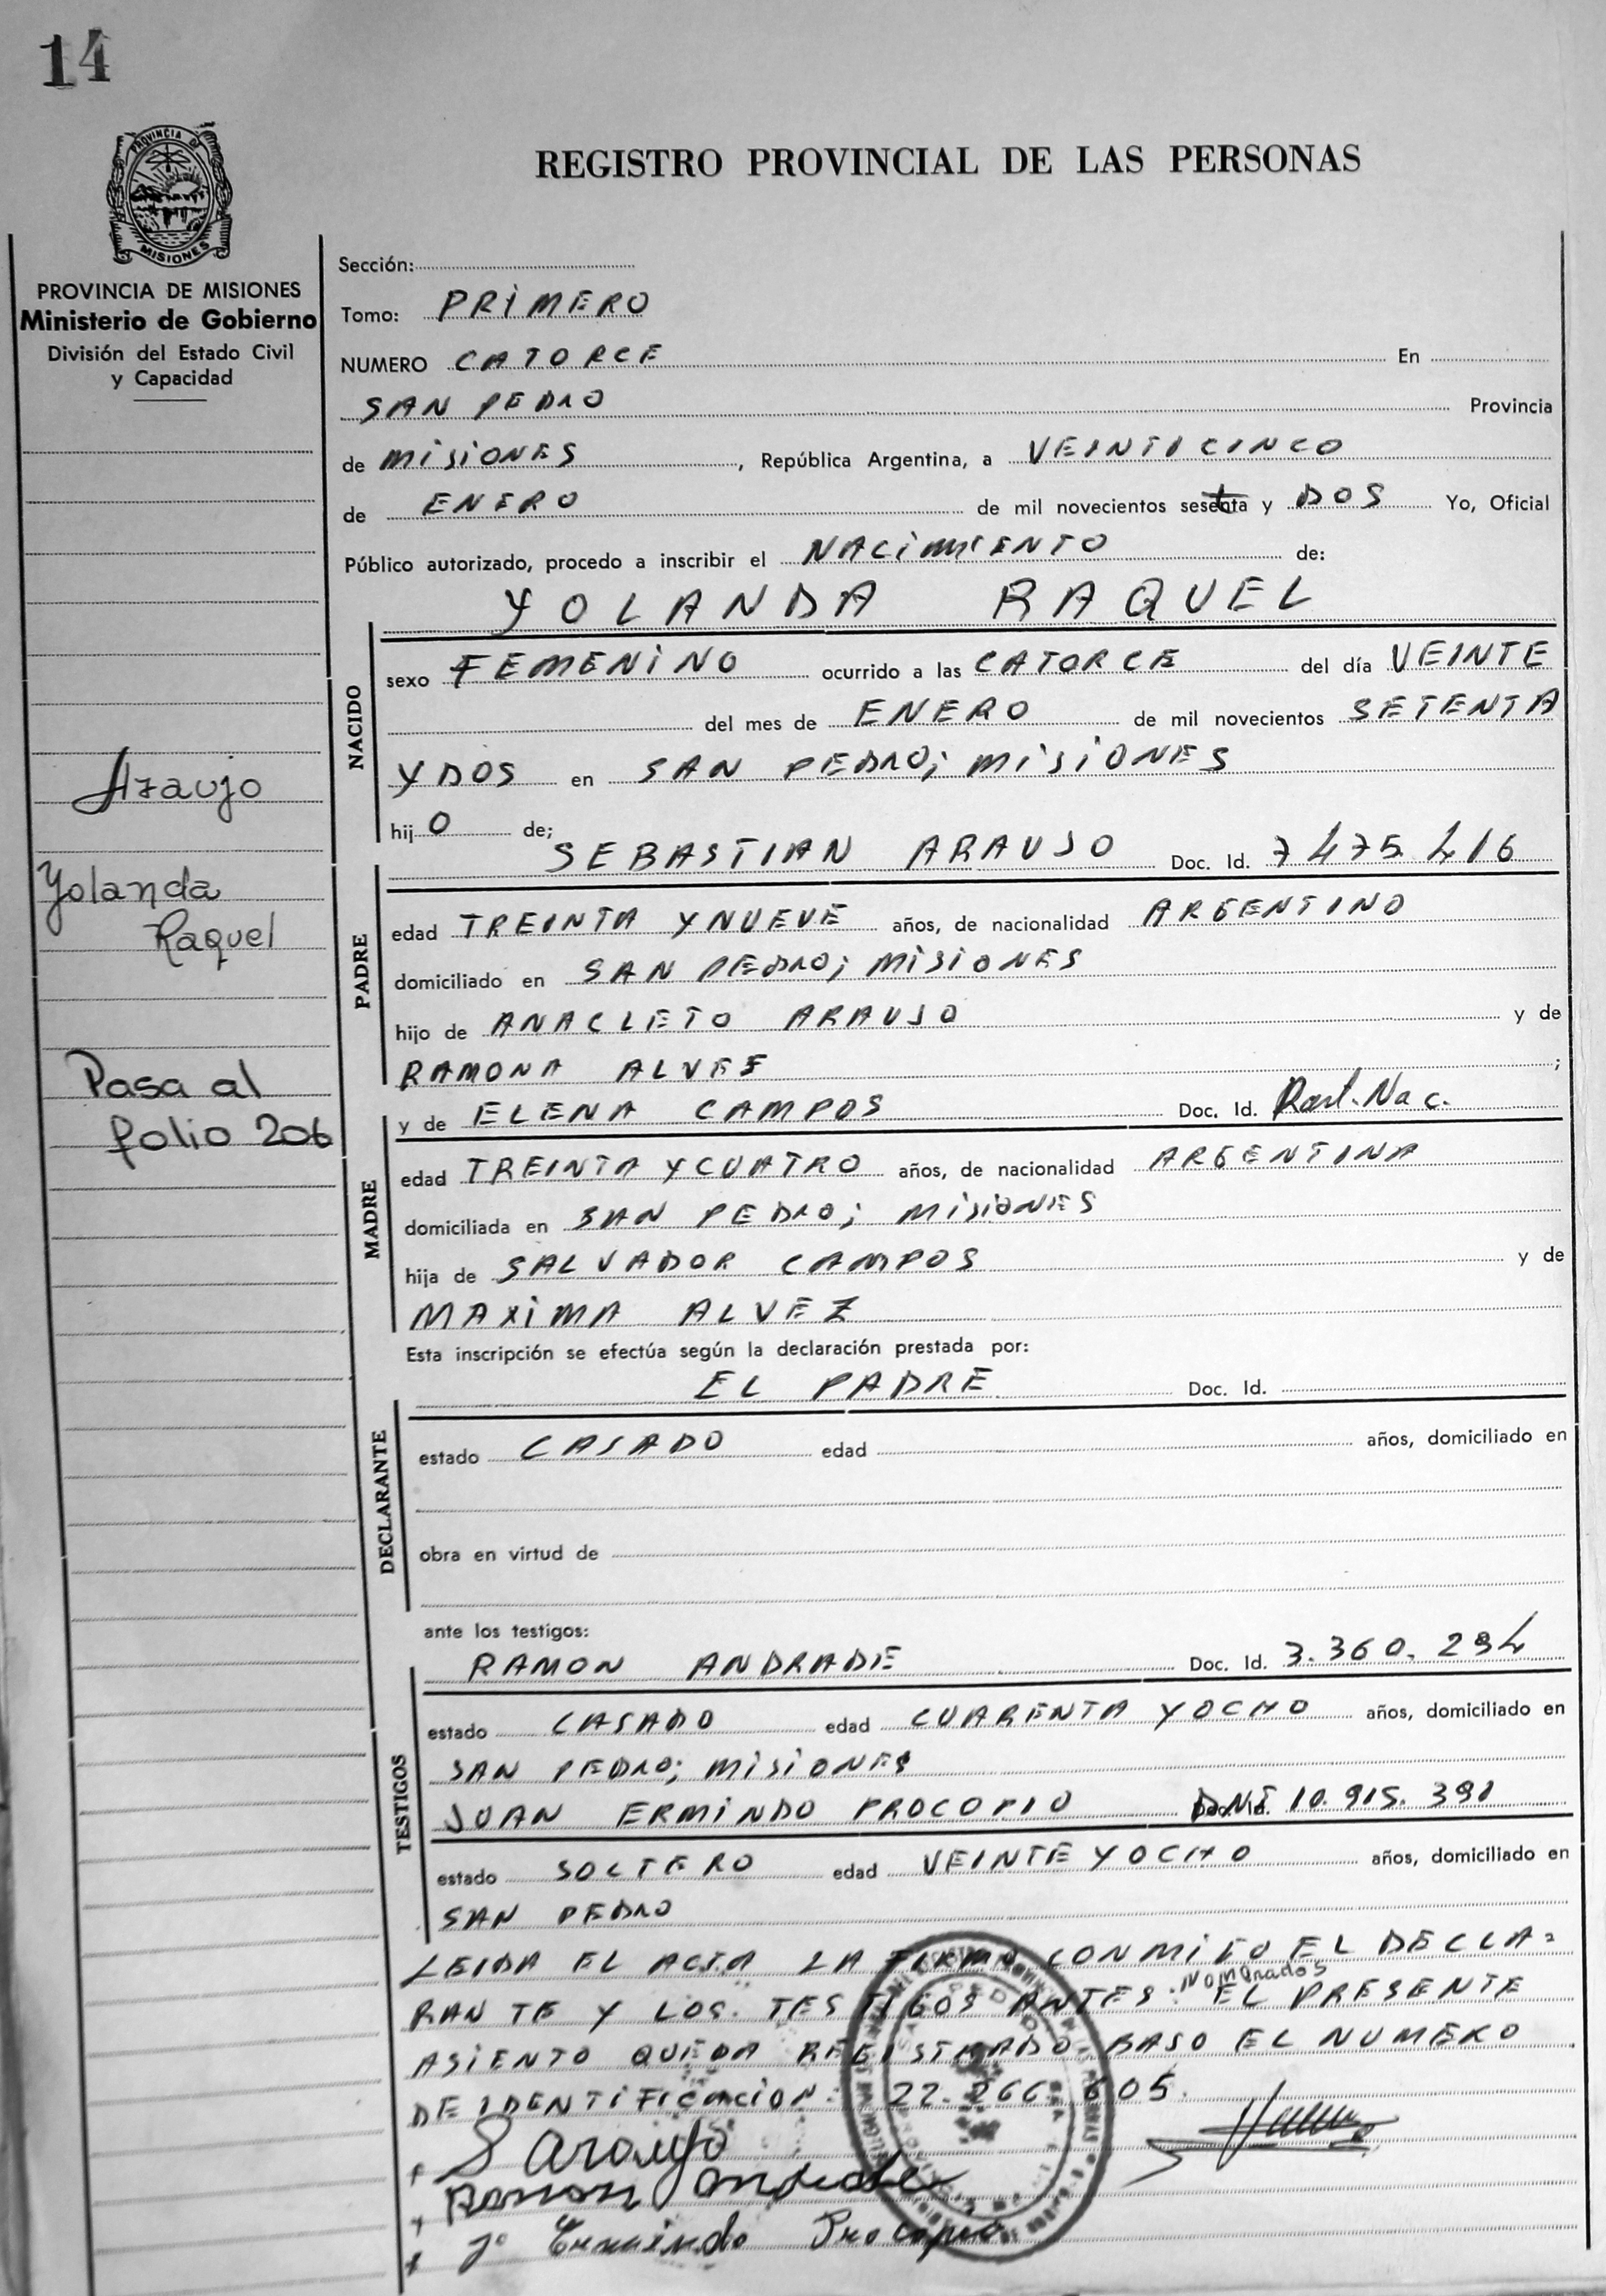 14
REGISTRO PROVINCIAL DE LAS PERSONAS
PROVINCIA DE
MISIONES
PROVINCIA DE MISIONES
Ministerio de Gobierno
División del Estado Civil
y Capacidad
Sección:
Tomo: PRIMERO
NUMERO CATORCE En
SAN PEDRO Provincia
de MISIONES, República Argentina, a VEINTICINCO
de ENERO de mil novecientos setenta y DOS Yo, Oficial
Público autorizado, procedo a inscribir el NACIMIENTO de:
YOLANDA RAQUEL
NACIDO
sexo FEMENINO ocurrido a las CATORCE del día VEINTE
del mes de ENERO de mil novecientos SETENTA
Y DOS en SAN PEDRO; MISIONES
hij O de;
SEBASTIAN ARAUJO Doc. Id. 7475.416
Araujo
Yolanda
Raquel
PADRE
edad TREINTA Y NUEVE años, de nacionalidad ARGENTINO
domiciliado en SAN PEDRO; MISIONES
hijo de ANACLETO ARAUJO y de
RAMONA ALVEZ ;
Pasa al
folio 206
y de ELENA CAMPOS Doc. Id. Part. Nac.
MADRE
edad TREINTA Y CUATRO años, de nacionalidad ARGENTINA
domiciliada en SAN PEDRO; MISIONES
hija de SALVADOR CAMPOS y de
MAXIMA ALVEZ
Esta inscripción se efectúa según la declaración prestada por:
EL PADRE Doc. Id.
DECLARANTE
estado CASADO edad años, domiciliado en
obra en virtud de
ante los testigos:
RAMON ANDRADE Doc. Id. 3.360.294
TESTIGOS
estado CASADO edad CUARENTA Y OCHO años, domiciliado en
SAN PEDRO; MISIONES
JUAN ERMINDO PROCOPIO DNI 10.915.391
estado SOLTERO edad VEINTE Y OCHO años, domiciliado en
SAN PEDRO
LEIDA EL ACTA LA FIRMA CONMIGO EL DECLA=
RANTE Y LOS TESTIGOS ANTES nombrados EL PRESENTE
ASIENTO QUEDA REGISTRADO BAJO EL NUMERO
DE IDENTIFICACION: 22.266.605.
S Araujo
Ramon Andrade
J. Ermindo Procopio